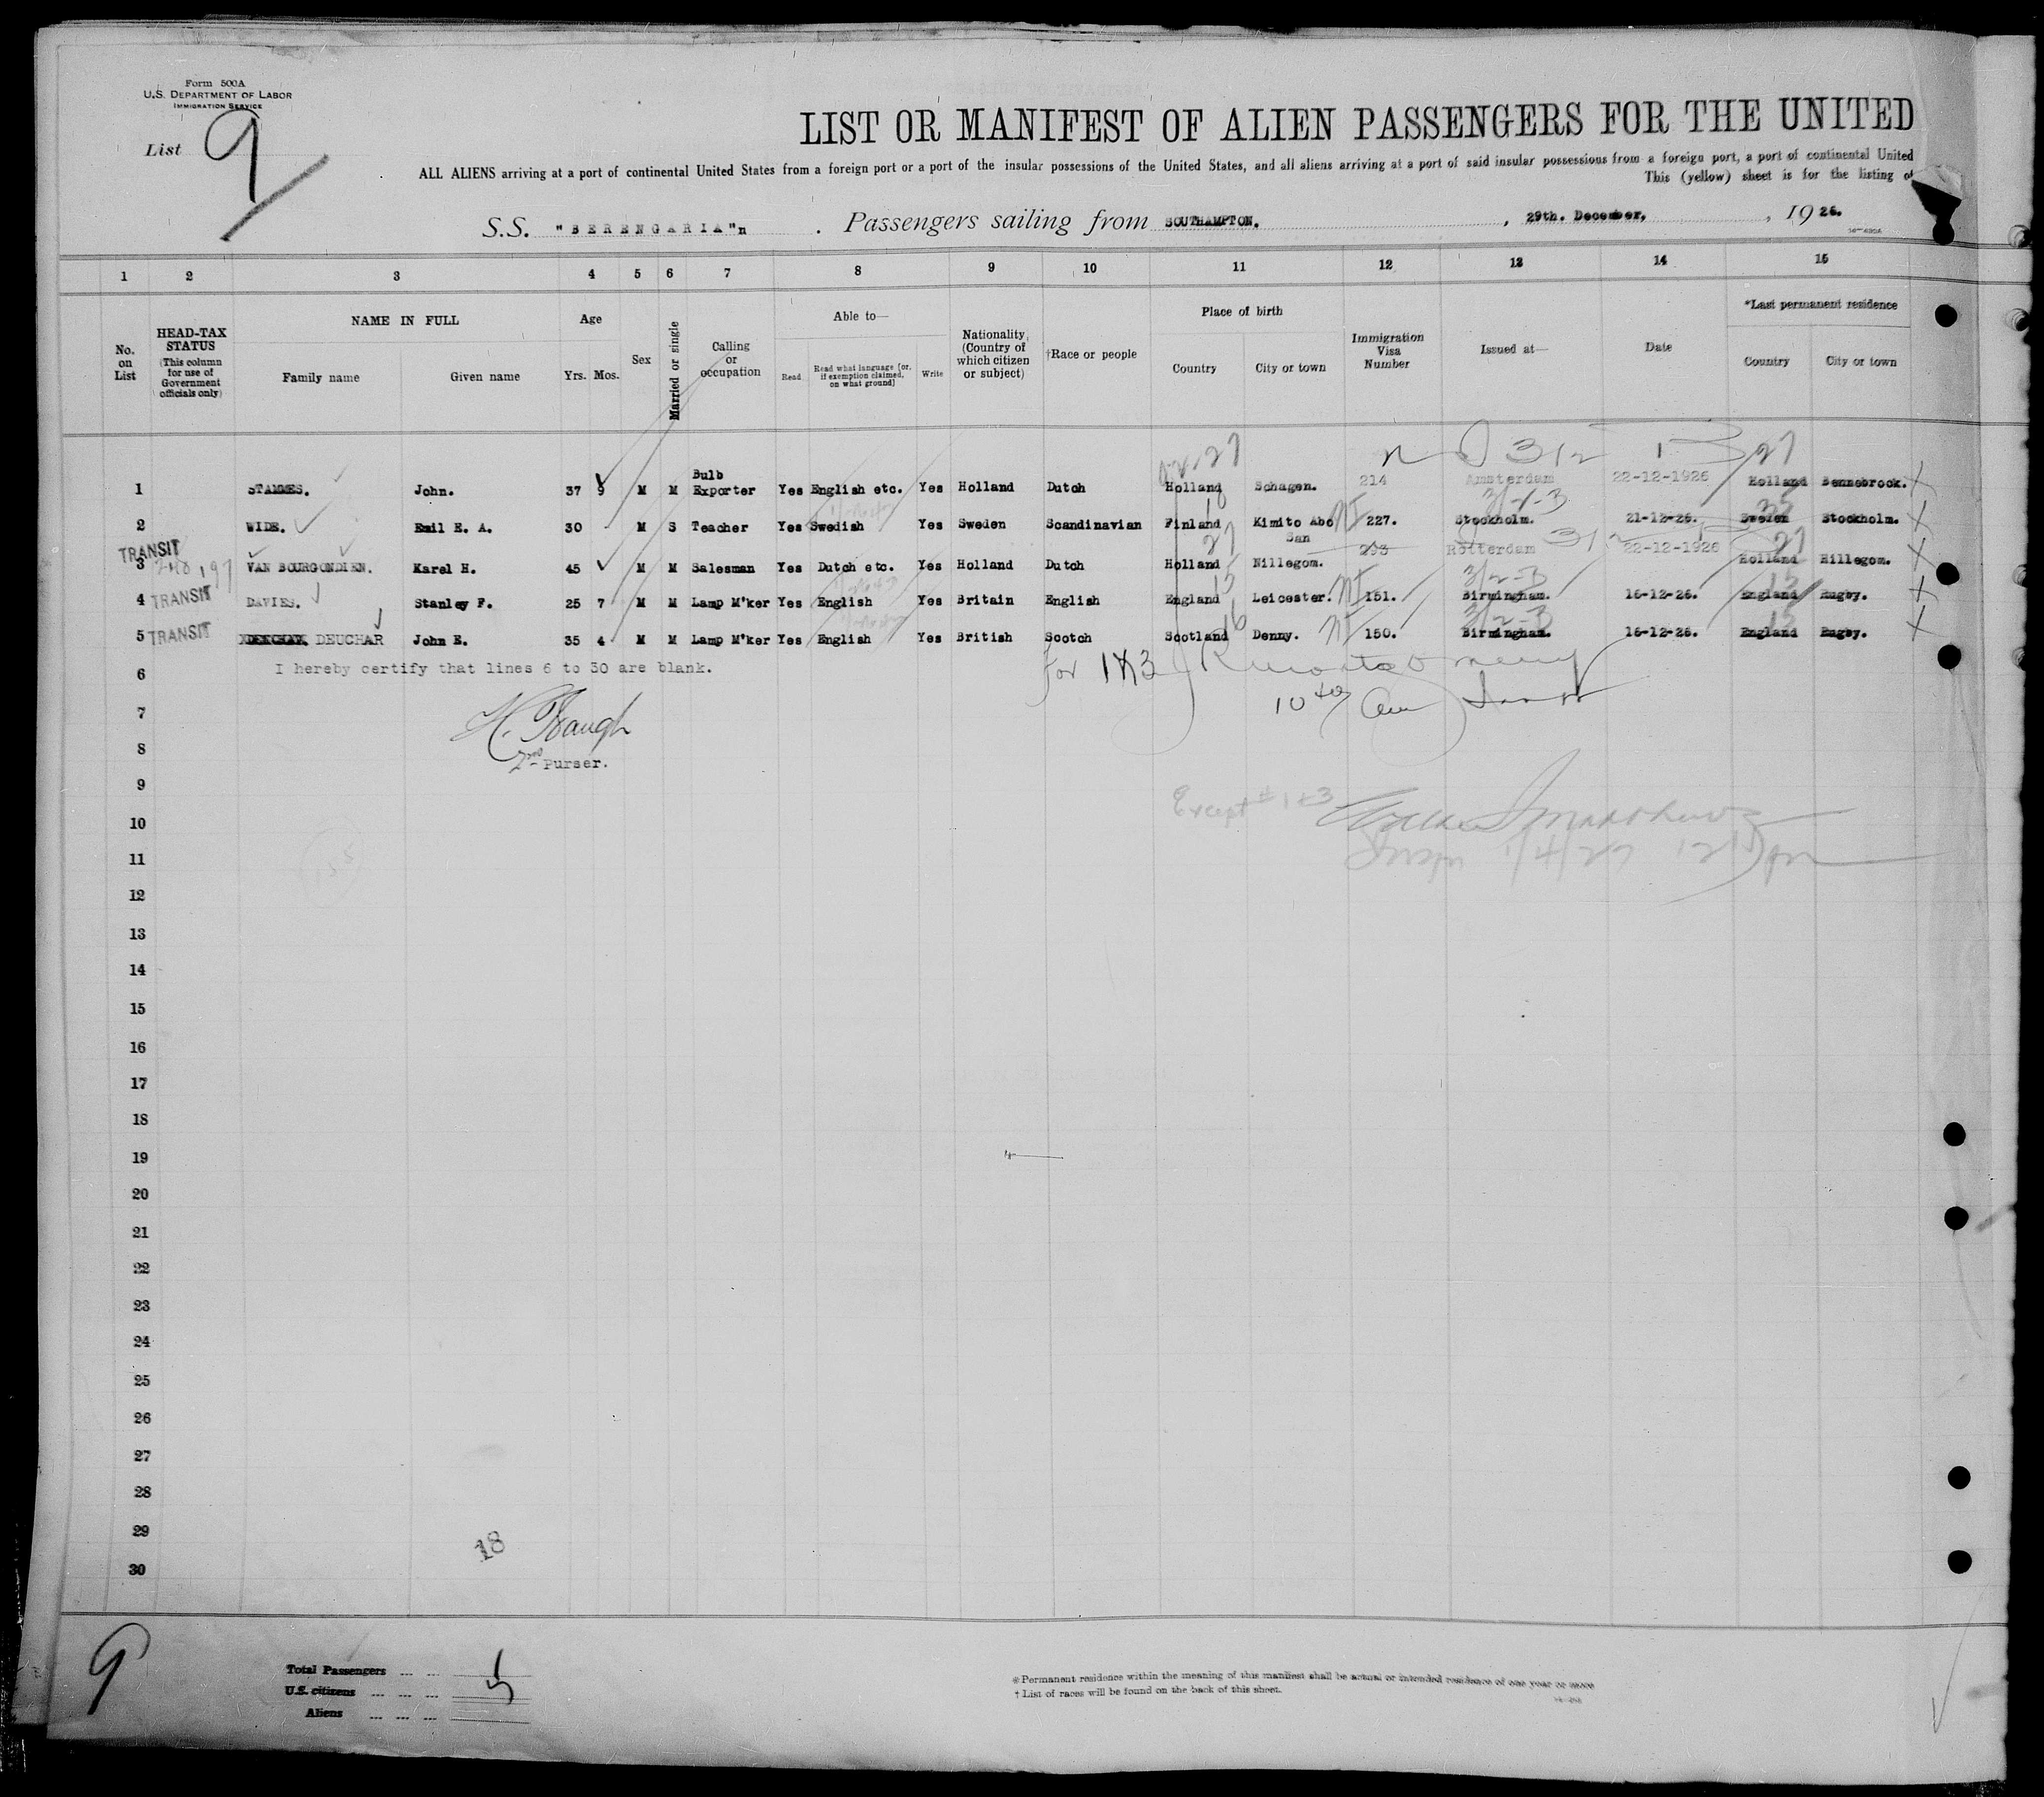 Form 500A
U.S. DEPARTMENT OF LABOR
IMMIGRATION SERVICE
List 9
LIST OR MANIFEST OF ALIEN PASSENGERS FOR THE UNITED
ALL ALIENS arriving at a port of continental United States from a foreign port or a port of the insular possessions of the United States, and all aliens arriving at a port of said insular possessions from a foreign port, a port of continental United
This (yellow) sheet is for the listing of
S.S. "BERENGARIA"n . Passengers sailing from SOUTHAMPTON. , 29th. December, , 1926.
1 2 3 4 5 6 7 8 9 10 11 12 13 14 15
No. on List
HEAD-TAX STATUS (This column for use of Government officials only)
NAME IN FULL
Family name Given name
Age
Yrs. Mos.
Sex
Married or single
Calling or occupation
Able to—
Read Read what language (or, if exemption claimed, on what ground) Write
Nationality (Country of which citizen or subject)
†Race or people
Place of birth
Country City or town
Immigration Visa Number
Issued at—
Date
*Last permanent residence
Country City or town
1 STAMMES. John. 37 9 M M Bulb Exporter Yes English etc. Yes Holland Dutch Holland Schagen. 214 Amsterdam 22-12-1926 Holland Bennebrock.
2 WIDE. Emil E. A. 30 - M S Teacher Yes Swedish Yes Sweden Scandinavian Finland Kimito Abo San 227. Stockholm. 21-12-26. Sweden Stockholm.
TRANSIT
3 VAN BOURGONDIEN. Karel H. 45 M M Salesman Yes Dutch etc. Yes Holland Dutch Holland Nillegom. 293 Rotterdam 22-12-1926 Holland Hillegom.
4 TRANSIT DAVIES. Stanley F. 25 7 M M Lamp M'ker Yes English Yes Britain English England Leicester. 151. Birmingham. 16-12-26. England Rugby.
5 TRANSIT DEUCHAR John E. 35 4 M M Lamp M'ker Yes English Yes British Scotch Scotland Denny. 150. Birmingham. 16-12-26. England Rugby.
6 I hereby certify that lines 6 to 30 are blank.
For 1&3
7
8
2nd Purser.
9
Except #1&3
10
11
Insp 1/4/27
12
13
14
15
16
17
18
19
20
21
22
23
24
25
26
27
28
29
18
30
9
Total Passengers ... ...
U.S. citizens ... ... ...
Aliens ... ... ...
5
*Permanent residence within the meaning of this manifest shall be actual or intended residence of one year or more
†List of races will be found on the back of this sheet.